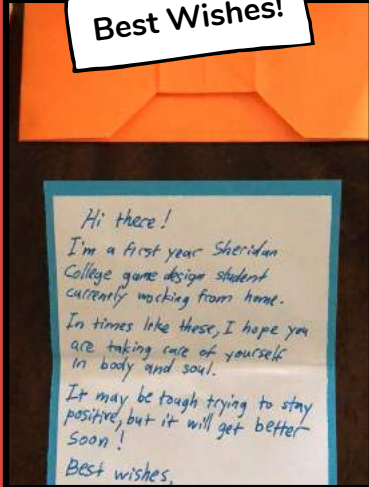 Best Wishes!
Hi there!
I'm a first year Sheridan
College game design student
currently working from home.
In times like these, I hope you
are taking care of yourself
in body and soul.
It may be tough trying to stay
positive, but it will get better
soon!
Best wishes,